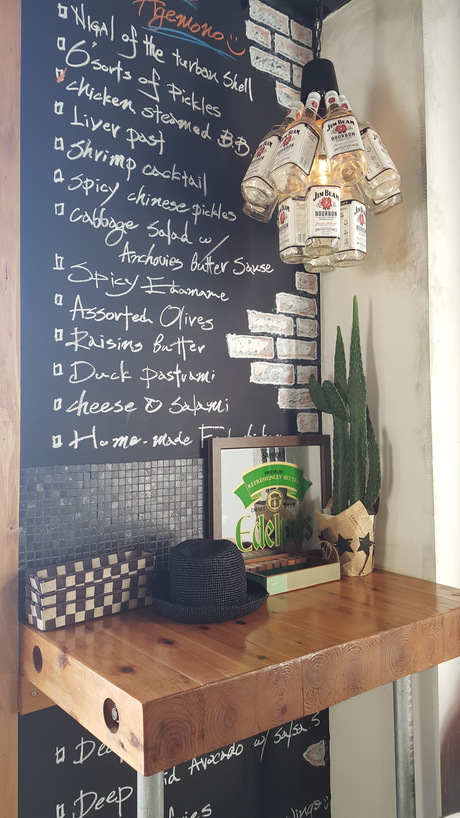 Agemono
Nigal of the turban shell
6 sorts of pickles
chicken steamed B.B.
Liver past
Shrimp cocktail
Spicy chinese pickles
cabbage Salad w/
Anchovies butter Sause
Spicy Edamame
Assorted Olives
Raisins butter
Duck pastrami
cheese & Salami
Home-made
JIM BEAM
BOURBON
JIM BEAM
BOURBON
JIM BEAM
BOURBON
SAPPORO
PREMIUM
REFRESHINGLY BITTER
DRAFT
Edel
Avocado w/ salsa S
Deep
Wings